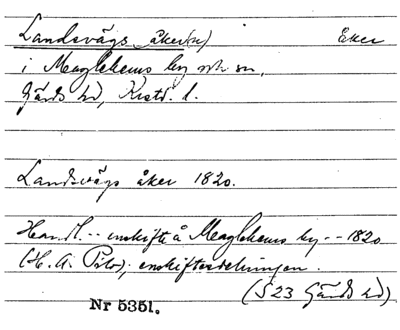 Landsvägs åker(n) Åker
i Maglehems by och sn,
Gärds hd, Krstd. l.
Landsvägs åker 1820.
Handl. -- enskifte å Maglehems by -- 1820
(H. A. Pilo); enskiftesdelningen.
(S 23 Gärds hd)
Nr 5351.